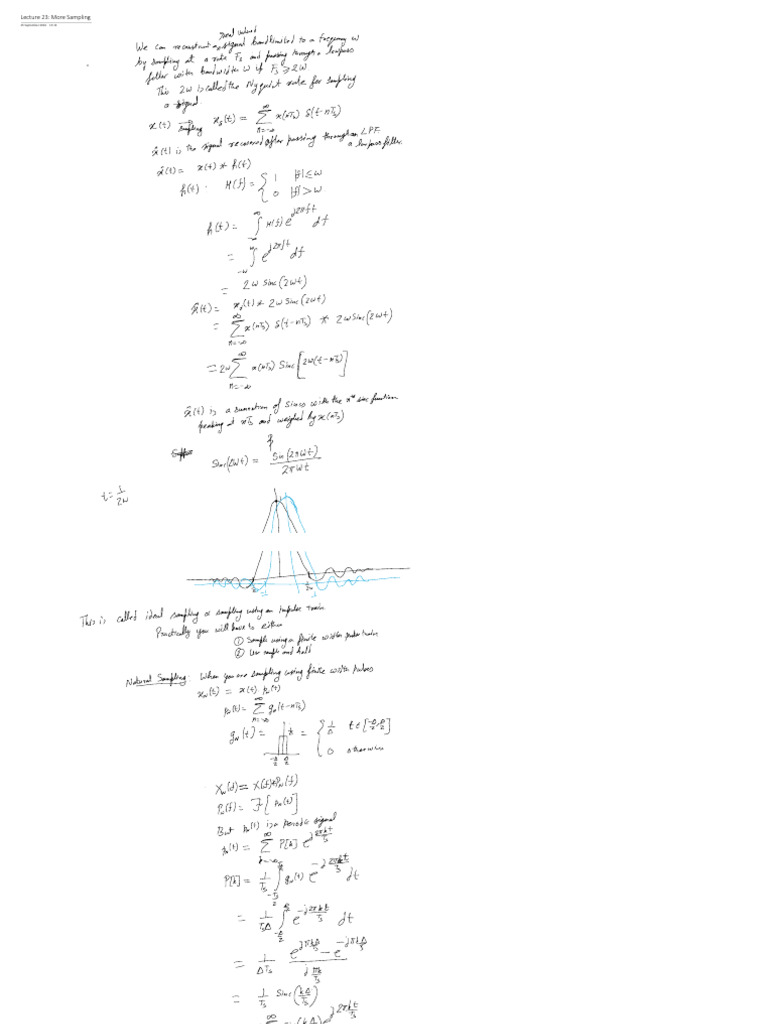 Lecture 23: More Sampling
real valued
We can reconstruct a signal bandlimited to a frequency W
by sampling at a rate Fs and passing through a lowpass
filter with bandwidth W if Fs ≥ 2W
This 2W is called the Nyquist rate for sampling
a signal.
x(t) → sampling xs(t) = ∑ n=-∞ ∞ x(nTs) δ(t-nTs)
x̂(t) is the signal recovered after passing through an LPF.
a lowpass filter.
x̂(t) = x(t) * h(t)
h(t) · H(f) = { 1 |f| ≤ W
0 |f| > W
h(t) = ∫ -∞ ∞ H(f) e^{j2πft} df
= ∫ -W W e^{j2πft} df
= 2W sinc(2Wt)
x̂(t) = xs(t) * 2W sinc(2Wt)
= ∑ n=-∞ ∞ x(nTs) δ(t-nTs) * 2W sinc(2Wt)
= 2W ∑ n=-∞ ∞ x(nTs) sinc[2W(t-nTs)]
x̂(t) is a summation of sincs with the nth sinc function
peaking at nTs and weighed by x(nTs)
sinc(2Wt) = sin(2πWt) / 2πWt
t = 1/2W
This is called ideal sampling or sampling using an impulse train
Practically you will have to either
① Sample using a finite width pulse train
② Use sample and hold
Natural Sampling: When you are sampling using finite width pulses
xN(t) = x(t) pN(t)
pN(t) = ∑ n=-∞ ∞ gN(t-nTs)
gN(t) = -Δ/2 Δ/2 1/Δ = { 1/Δ t ∈ [-Δ/2, Δ/2]
0 otherwise
XN(f) = X(f) * PN(f)
PN(f) = F{pN(t)}
But pN(t) is a periodic signal
pN(t) = ∑ k=-∞ ∞ P[k] e^{j2πkt/Ts}
P[k] = 1/Ts ∫ -Ts/2 Ts/2 gN(t) e^{-j2πkt/Ts} dt
= 1/TsΔ ∫ -Δ/2 Δ/2 e^{-j2πkt/Ts} dt
= 1/ΔTs (e^{jπkΔ/Ts} - e^{-jπkΔ/Ts})
= 1/Ts sinc(kΔ/Ts)